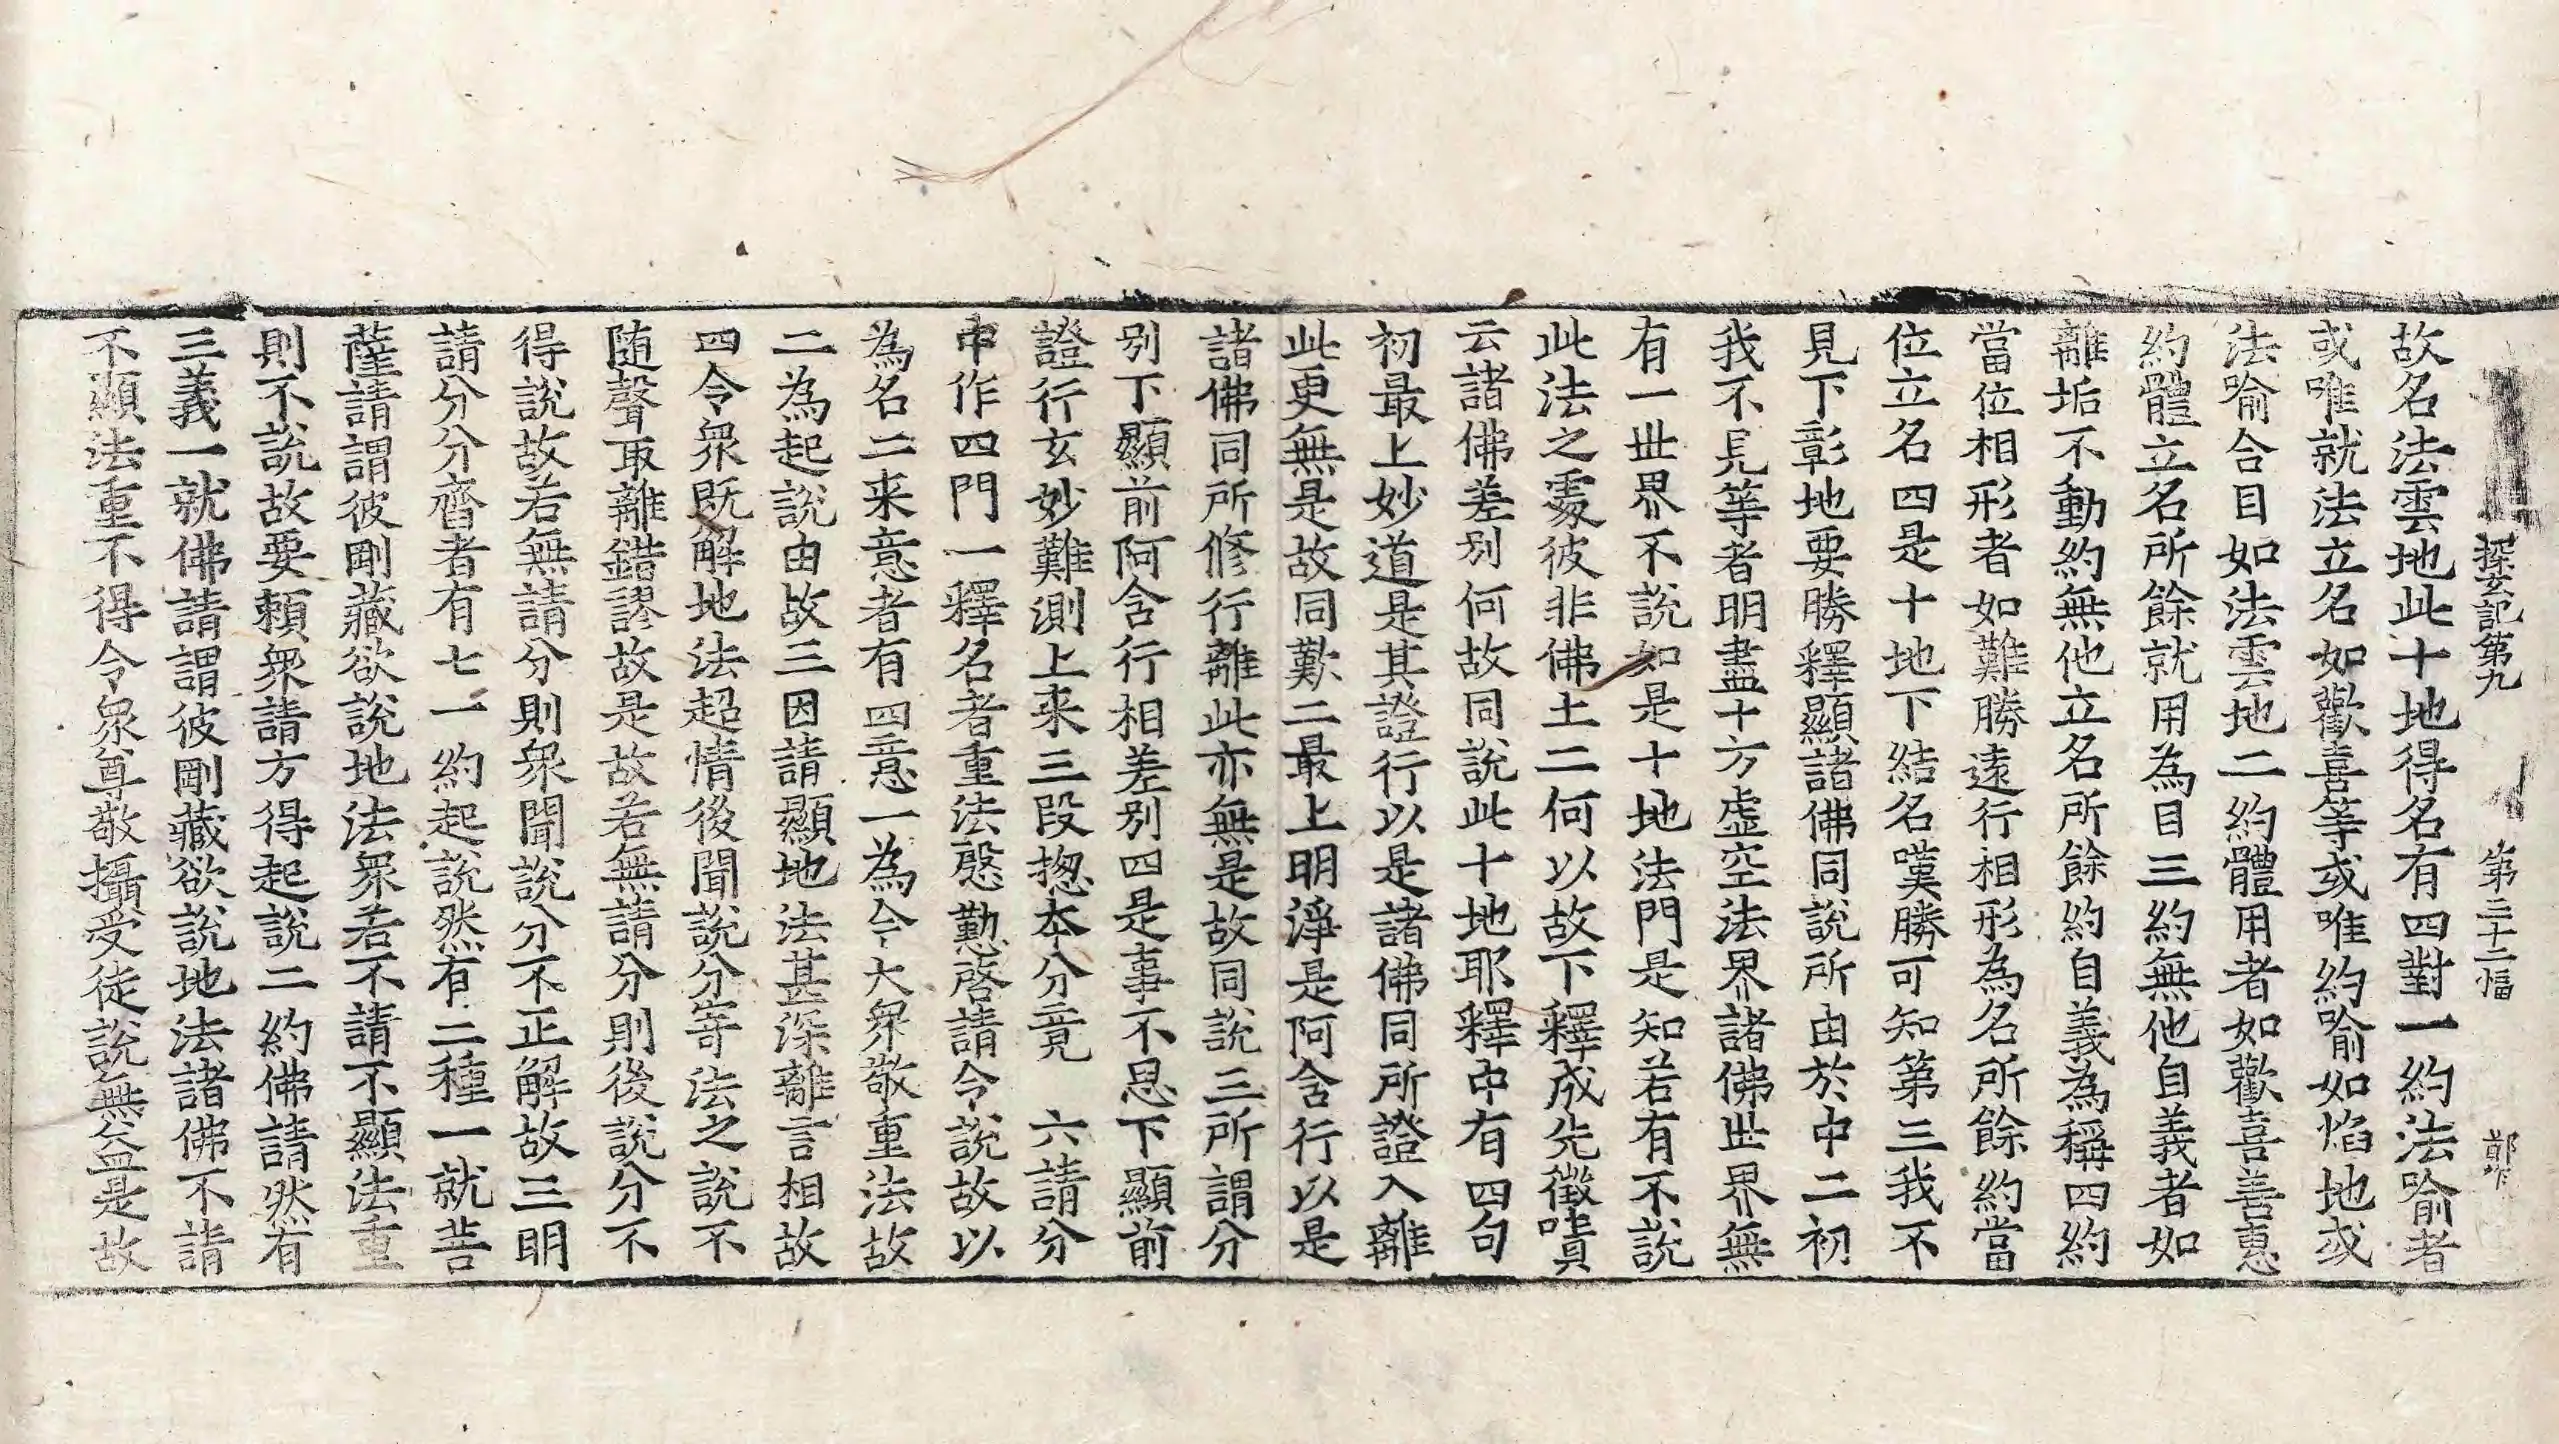 探玄記第九 第二十二幅
故名法雲地此十地得名有四對一約法喻者
或唯就法立名如歡喜等或唯約喻如焰地或
法喻合目如法雲地二約體用者如歡喜善惠
約體立名所餘就用為目三約無他自義者如
離垢不動約無他立名所餘約自義為稱四約
當位相形者如難勝遠行相形為名所餘約當
位立名四是十地下結名嘆勝可知第三我不
見下彰地要勝釋顯諸佛同說所由於中二初
我不見等者明盡十方虛空法界諸佛世界無
有一世界不說如是十地法門是知若有不說
此法之處彼非佛土二何以故下釋成先徵嘖
云諸佛差別何故同說此十地耶釋中有四句
初最上妙道是其證行以是諸佛同所證入離
此更無是故同歎二最上明淨是阿含行以是
諸佛同所修行離此亦無是故同說三所謂分
別下顯前阿含行相差別四是事不思下顯前
證行玄妙難測上來三段揔本分竟 六請分
中作四門一釋名者重法慇懃啓請令說故以
為名二来意者有四意一為令大衆敬重法故
二為起說由故三因請顯地法甚深離言相故
四令衆既解地法超情後聞說分寄法之說不
随聲取離錯謬故是故若無請分則後說分不
得說故若無請分則衆聞說分不正解故三明
請分分齊者有七一約起說然有二種一就菩
薩請謂彼剛藏欲說地法衆若不請不顯法重
則不說故要頼衆請方得起說二約佛請然有
三義一就佛請謂彼剛藏欲說地法諸佛不請
不顯法重不得令衆尊敬攝受徒說無益是故